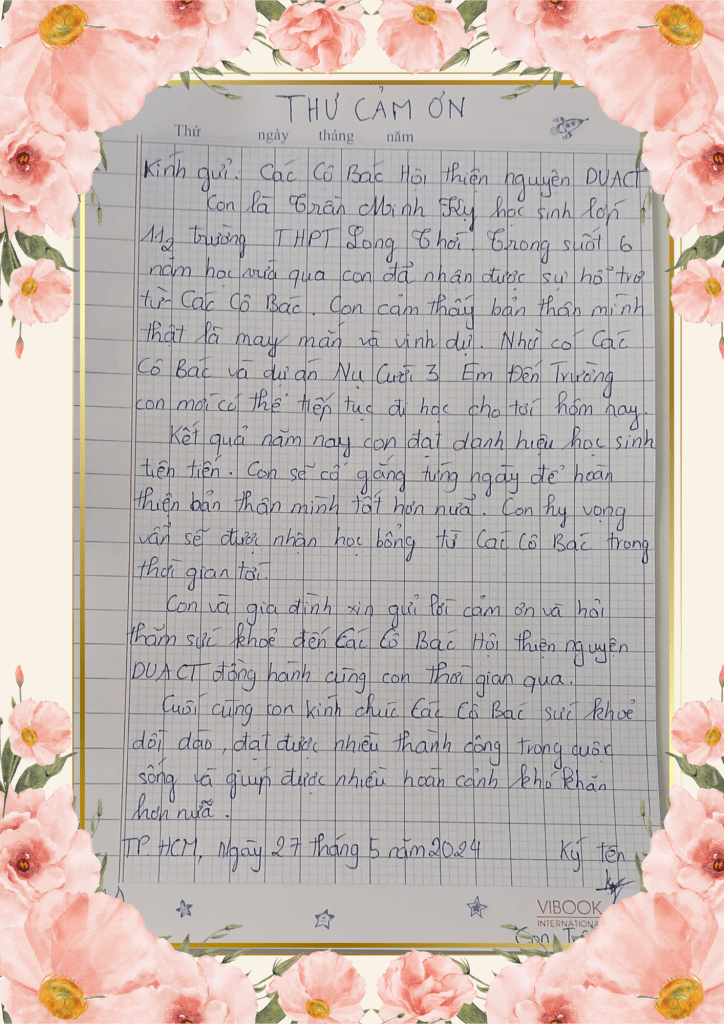 THƯ CẢM ƠN
Thứ ngày tháng năm
Kính gửi. Các Cô Bác Hội thiện nguyện DUACT
Con là Trần Minh Kỳ học sinh lớp
11.2 trường THPT Long Thới. Trong suốt 6
năm học vừa qua con đã nhận được sự hổ trợ
từ Các Cô Bác. Con cảm thấy bản thân mình
thật là may mắn và vinh dự. Nhờ có Các
Cô Bác và dự án Nụ Cười 3 Em Đến Trường
con mới có thể tiếp tục đi học cho tới hôm nay.
Kết quả năm nay con đạt danh hiệu học sinh
tiên tiến. Con sẽ cố gắng từng ngày để hoàn
thiện bản thân mình tốt hơn nữa. Con hy vọng
vẩn sẽ được nhận học bổng từ Các Cô Bác trong
thời gian tới.
Con và gia đình xin gửi lời cảm ơn và hỏi
thăm sức khoẻ đến Các Cô Bác Hội thiện nguyện
DUACT đồng hành cùng con thời gian qua.
Cuối cùng con kính chúc Các Cô Bác sức khoẻ
dồi dào, đạt được nhiều thành công trong cuộc
sống và giúp được nhiều hoàn cảnh khó khăn
hơn nữa.
TP. HCM, Ngày 27 tháng 5 năm 2024 Ký tên
VIBOOK
INTERNATIONAL